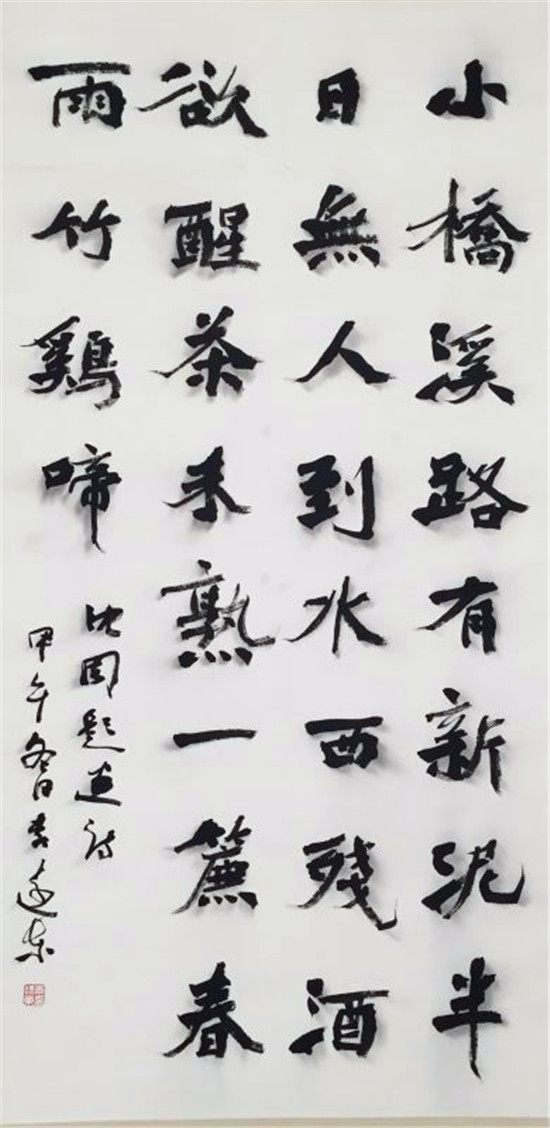 小橋溪路有新泥半
日無人到水西殘酒
欲醒茶未熟一簾春
雨竹鷄啼
沈周題画詩
甲午冬日李遠東